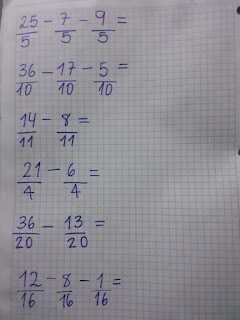 25/5 - 7/5 - 9/5 =
36/10 - 17/10 - 5/10 =
14/11 - 8/11 =
21/4 - 6/4 =
36/20 - 13/20
12/16 - 8/16 - 1/16 =